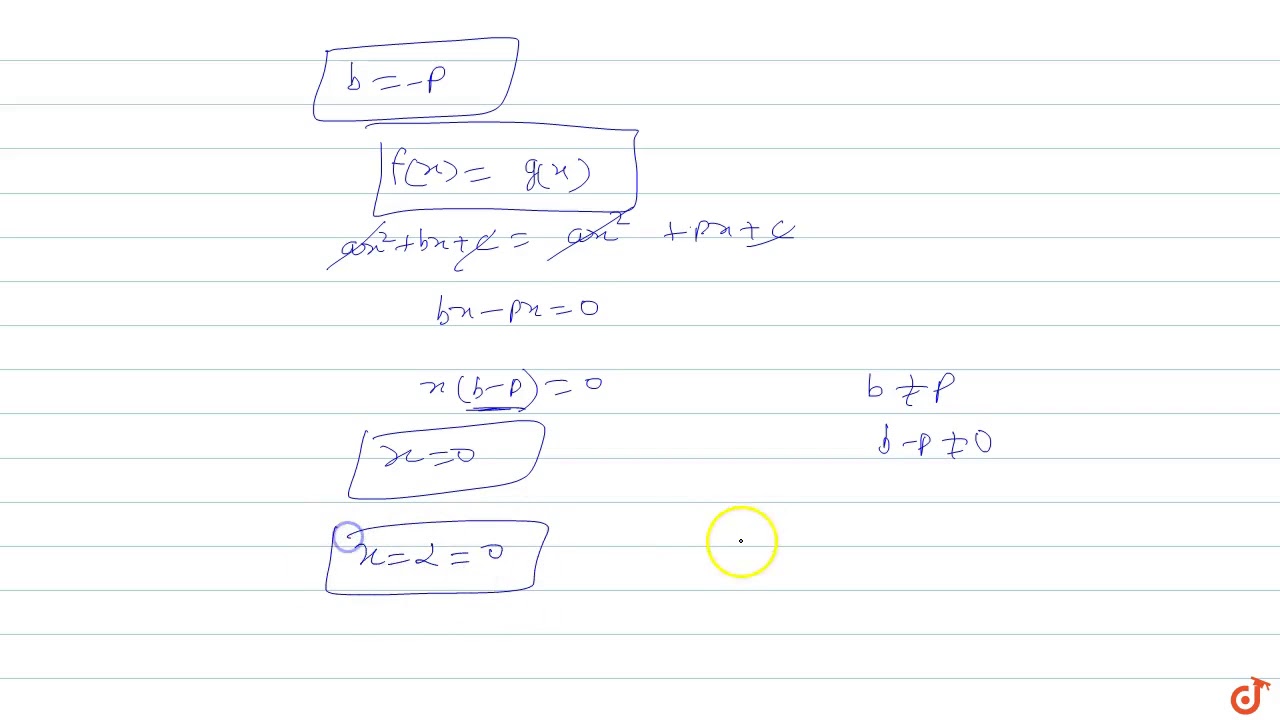 b = -p
f(x) = g(x)
ax² + bx + c = ax² + px + c
bx - px = 0
x (b-p) = 0
b ≠ p
x = 0
b - p ≠ 0
x = α = 0